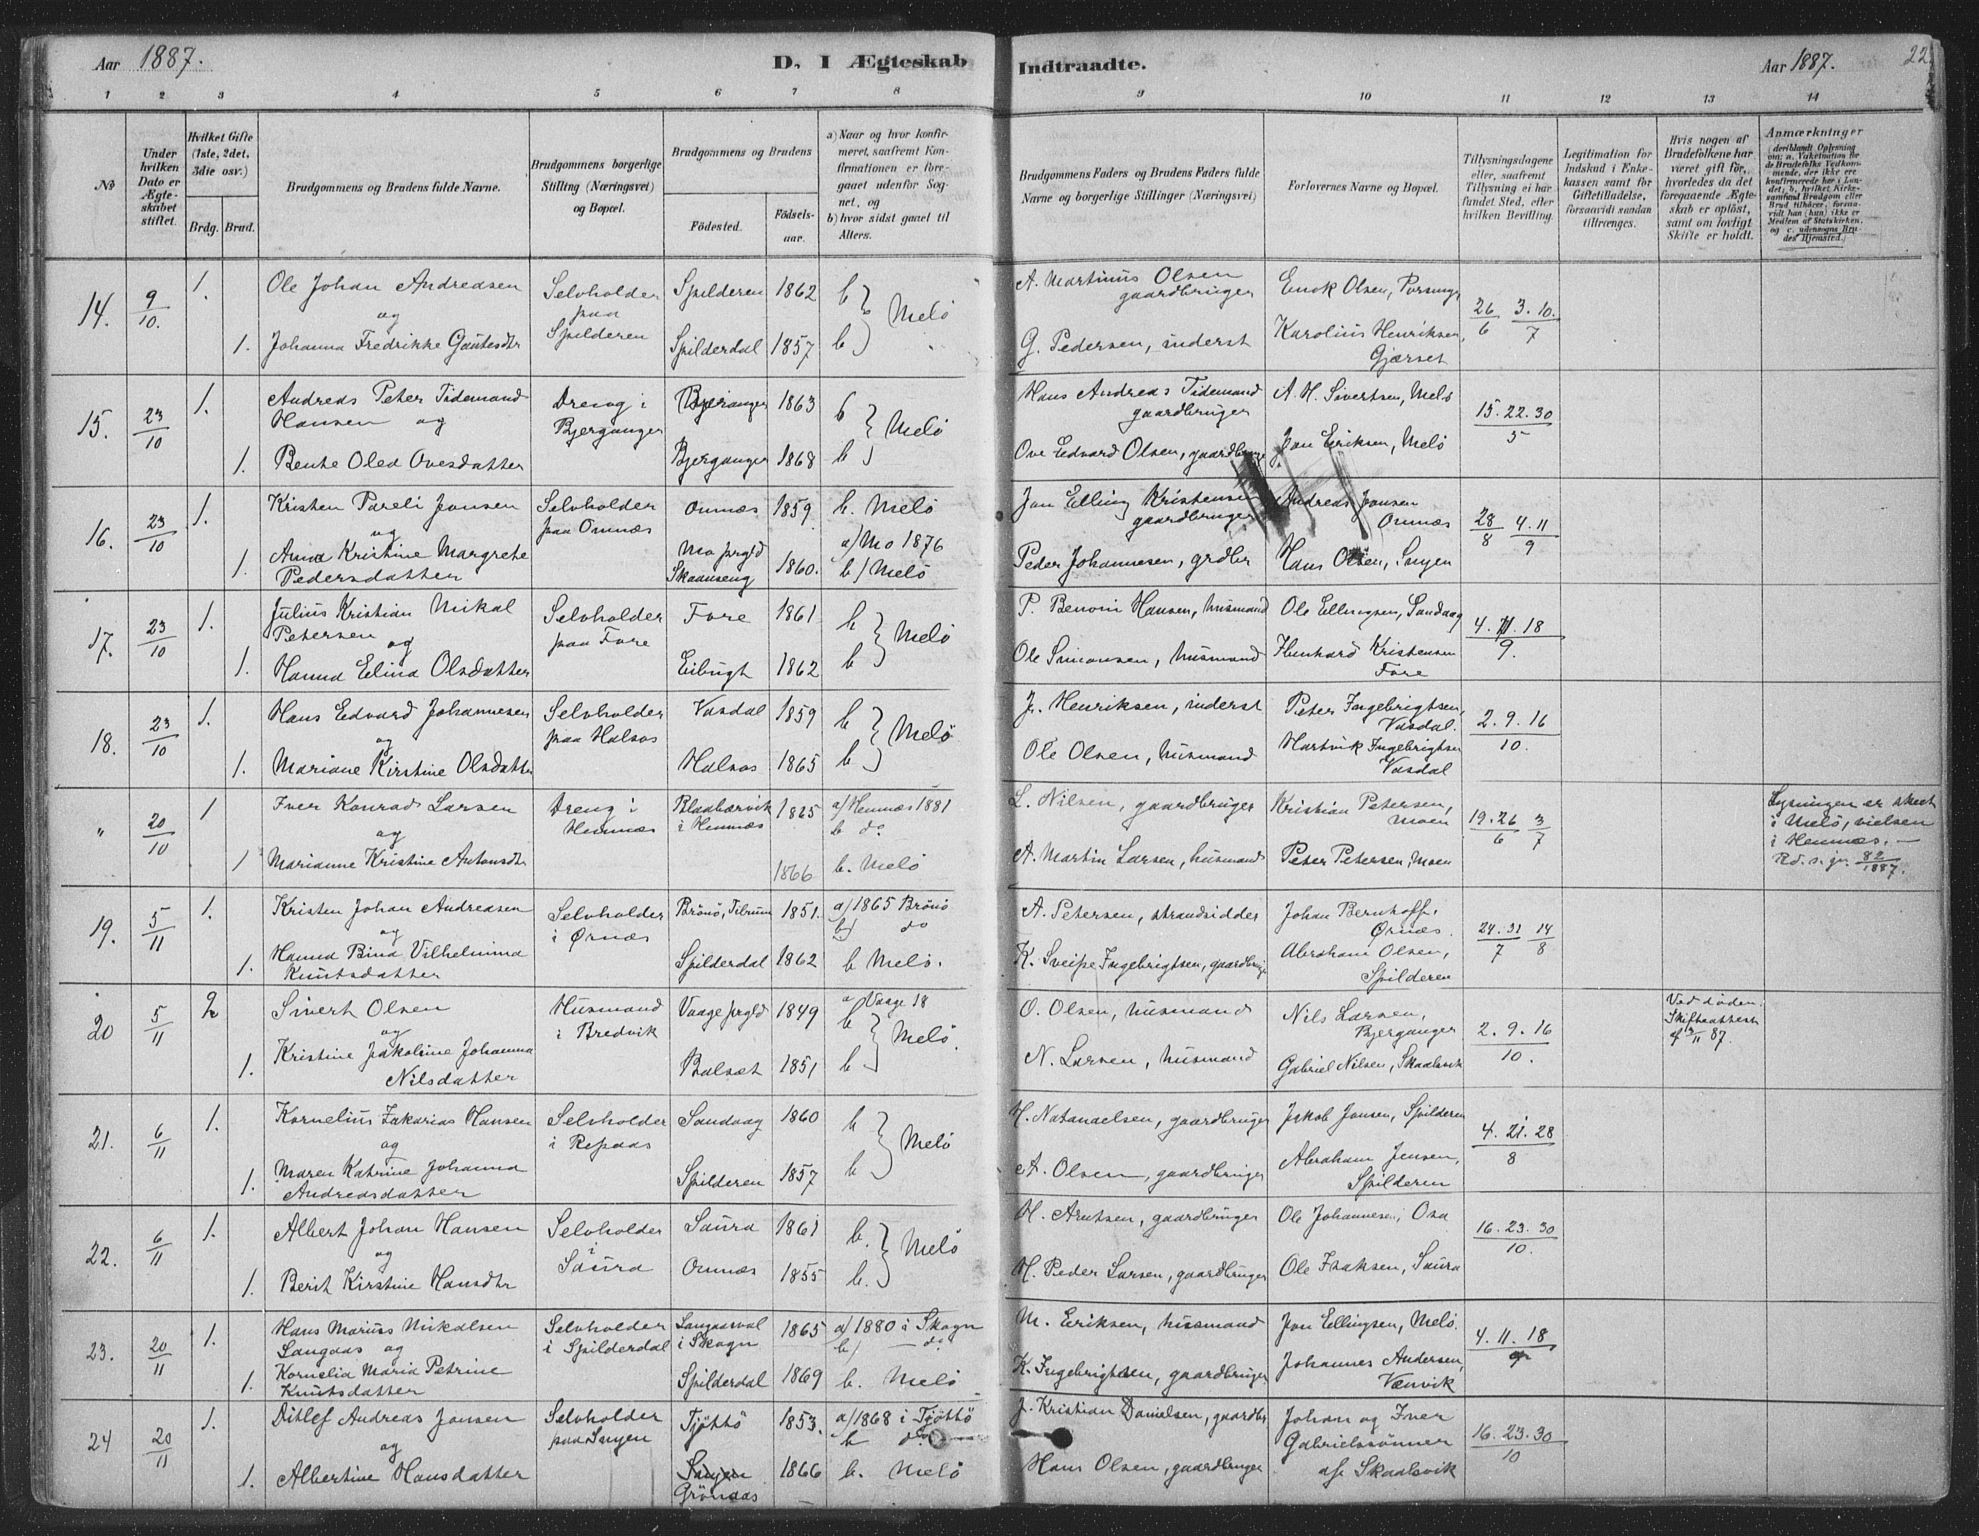 Aar 1887.
D. I Ægteskab Indtraadte.
Aar 1887.
22
1 2 3 4 5 6 7 8 9 10 11 12 13 14
No
Under hvilken Dato er Ægteskabet stiftet.
Hvilket Gifte (1ste, 2det, 3die osv.)
Brdg. Brud.
Brudgommens og Brudens fulde Navne.
Brudgommens borgerlige Stilling (Næringsvei) og Bopæl.
Brudgommens og Brudens
Fødested.
Fødselsaar.
a) Naar og hvor konfirmeret, saafremt Konfirmationen er foregaaet udenfor Sognet, og
b) hvor sidst gaaet til Alters.
Brudgommens Faders og Brudens Faders fulde Navne og borgerlige Stillinger (Næringsvei)
Forlovernes Navne og Bopæl.
Tillysningsdagene eller, saafremt Tillysning ei har fundet Sted, efter hvilken Bevilling.
Legitimation for Indskud i Enkekassen samt for Giftetilladelse, forsaavidt saadan tiltrænges.
Hvis nogen af Brudefolkene har været gift før, hvorledes da det foregaaende Ægteskab er opløst, samt om lovligt Skifte er holdt.
Anmærkninger
14. 9/10. 1. Ole Johan Andreasen Selvholder Spilderen 1862 b } Melö A. Martinus Olsen Enok Olsen,
og paa gaardbruger 26/6 3.10./7
1. Johanna Fredrikke Gautesdtr Spilderen Spilderdal 1857 b G. Pedersen, inderst Karolius Henriksen,
Gjærset
15. 23/10 1. Andreas Peter Tidemand Dreng i Bjeranger 1863 b } Melö Hans Andreas Tidemand A. H. Sivertsen, Melö 15.22.30/5
Hansen og Bjerganger gaardbruger
1. Bente Olea Ovesdatter Bjerganger 1868 b Ove Edvard Olsen, gaardbruger Jon Eriksen, Melö
16. 23/10 1. Kristen Pareli Jonsen Selvholder Ornæs 1859 b. Melö Jon Elling Kristensen Andreas Jonsen
og paa Ornæs gaardbruger Ornæs 28/8 4.11/9
1. Anna Kristine Margrete Mo prgld 1860. a) Mo 1876 Peder Johannesen, grdbr Hans Olsen,
Pedersdatter Skaanseng b) Melö
17. 23/10 1. Julius Kristian Mikal Selvholder Fore 1861 b } Melö P. Benoni Hansen, husmand Ole Ellingsen, Sandaag 4.11.18/9.
Petersen og paa Fore
1. Hanna Elina Olsdatter Eibugt 1862 b Ole Simonsen, husmand Kristensen
Fore
18. 23/10 1. Hans Edvard Johannesen Selvholder Vasdal 1859 b } Melö J. Henriksen, inderst Peter Ingebrigtsen, 2.9.16/10.
og paa Halsos Vasdal.
1. Mariane Kirstine Olsdatter Halsos 1865 b Ole Olsen, husmand Hartvik Ingebrigtsen
Vasdal
" 20/10 1 Iver Konrad Larsen Dreng i Blaabærvik 1865 a) Hemnæs 1881 L. Nilsen, gaardbruger Kristian Petersen, Lysningen er skeet
og Hemnæs i Hemnæs b do Moen 19.26/6 3/7 i Melö, vielsen
i Hemnæs. —
1 Marianne Kristine Antonsdtr 1866 b. Melö A. Martin Larsen, husmand Peter Petersen, Moen 82/1887.
19. 5/11 1. Kristen Johan Andreasen Selvholder Brönö, 1851. a) 1865 Brönö A. Petersen, strandsidder Johan Bernhoff,
og i Ørnæs b) do Ørnæs. 24.31/7 14/8
1. Hanna Bina Vilhelmina Spilderdal 1862 b Melö. K. Sveipe Ingebrigtsen, gaardbruger Abraham Olsen,
Knutsdatter Spilderen
20 5/11 2 Sivert Olsen Husmand Vaage prgld 1849 a Vaage 18 O. Olsen, husmand Nils Larsen, Ved døden.
og i Bredvik b } Melö. Bjerganger 2.9.16/10. Skifteattest
1. Kristine Jakobine Johanna Balsæt 1851 b N. Larsen, husmand Gabriel Nilsen, Skaalsvik
Nilsdatter
21. 6/11 1. Kornelius Zakarias Hansen Selvholder Sandaag 1860 b } Melö H. Natanaelsen, gaardbruger Jakob Jensen, Spilderen 4.21.28/8
og i Repaas
1. Maren Katrine Johanna Spilderen 1857 b A. Olsen, gaardbruger Abraham Jensen,
Andreasdatter Spilderen
22. 6/11 1. Albert Johan Hansen Selvholder Saura 1861 b. } Melö H. Arntsen, gaardbruger Ole Johannesen, Osa 16.23.30/10.
og i
1. Berit Kirstine Hansdtr Saura Ornæs 1855 b. H. Peder Larsen, gaardbruger Ole Isaksen, Saura
23. 20/11 1. Hans Marius Mikalsen Selvholder Langaasval 1865 a) 1880 i Skogn M. Eriksen, husmand Jon Ellingsen, Melö. 4.11.18/9
Langaas og i Spilderdal i Skogn b) — do
1. Kornelia Maria Petrine Spilderdal 1869 b. Melö K. Ingebrigtsen, gaardbruger Johannes Andersen,
Knutsdatter Vænvik
24 20/11 1. Ditlef Andreas Jonsen Selvholder Tjöttö 1853. a) 1868 i Tjöttö J. Kristian Danielsen, gaardbr Johan og Iver
og b do Gabrielssönner 16.23.30/10
1. Albertine Hansdatter Grönaas 1866 b. Melö Hans Olsen, gaardbruger af Skaalsvik